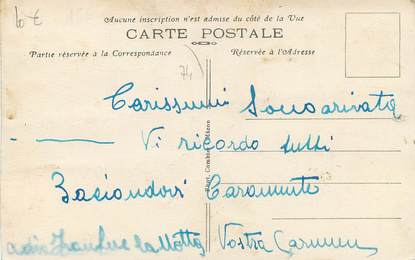 10 €
Aucune inscription n'est admise du côté de la Vue
CARTE POSTALE
Partie réservée à la Correspondance
Réservée à l'Adresse
74
Carissimi Sono arivata
Vi ricordo tutti
Baciandovi Caramente
Vostra Carmen